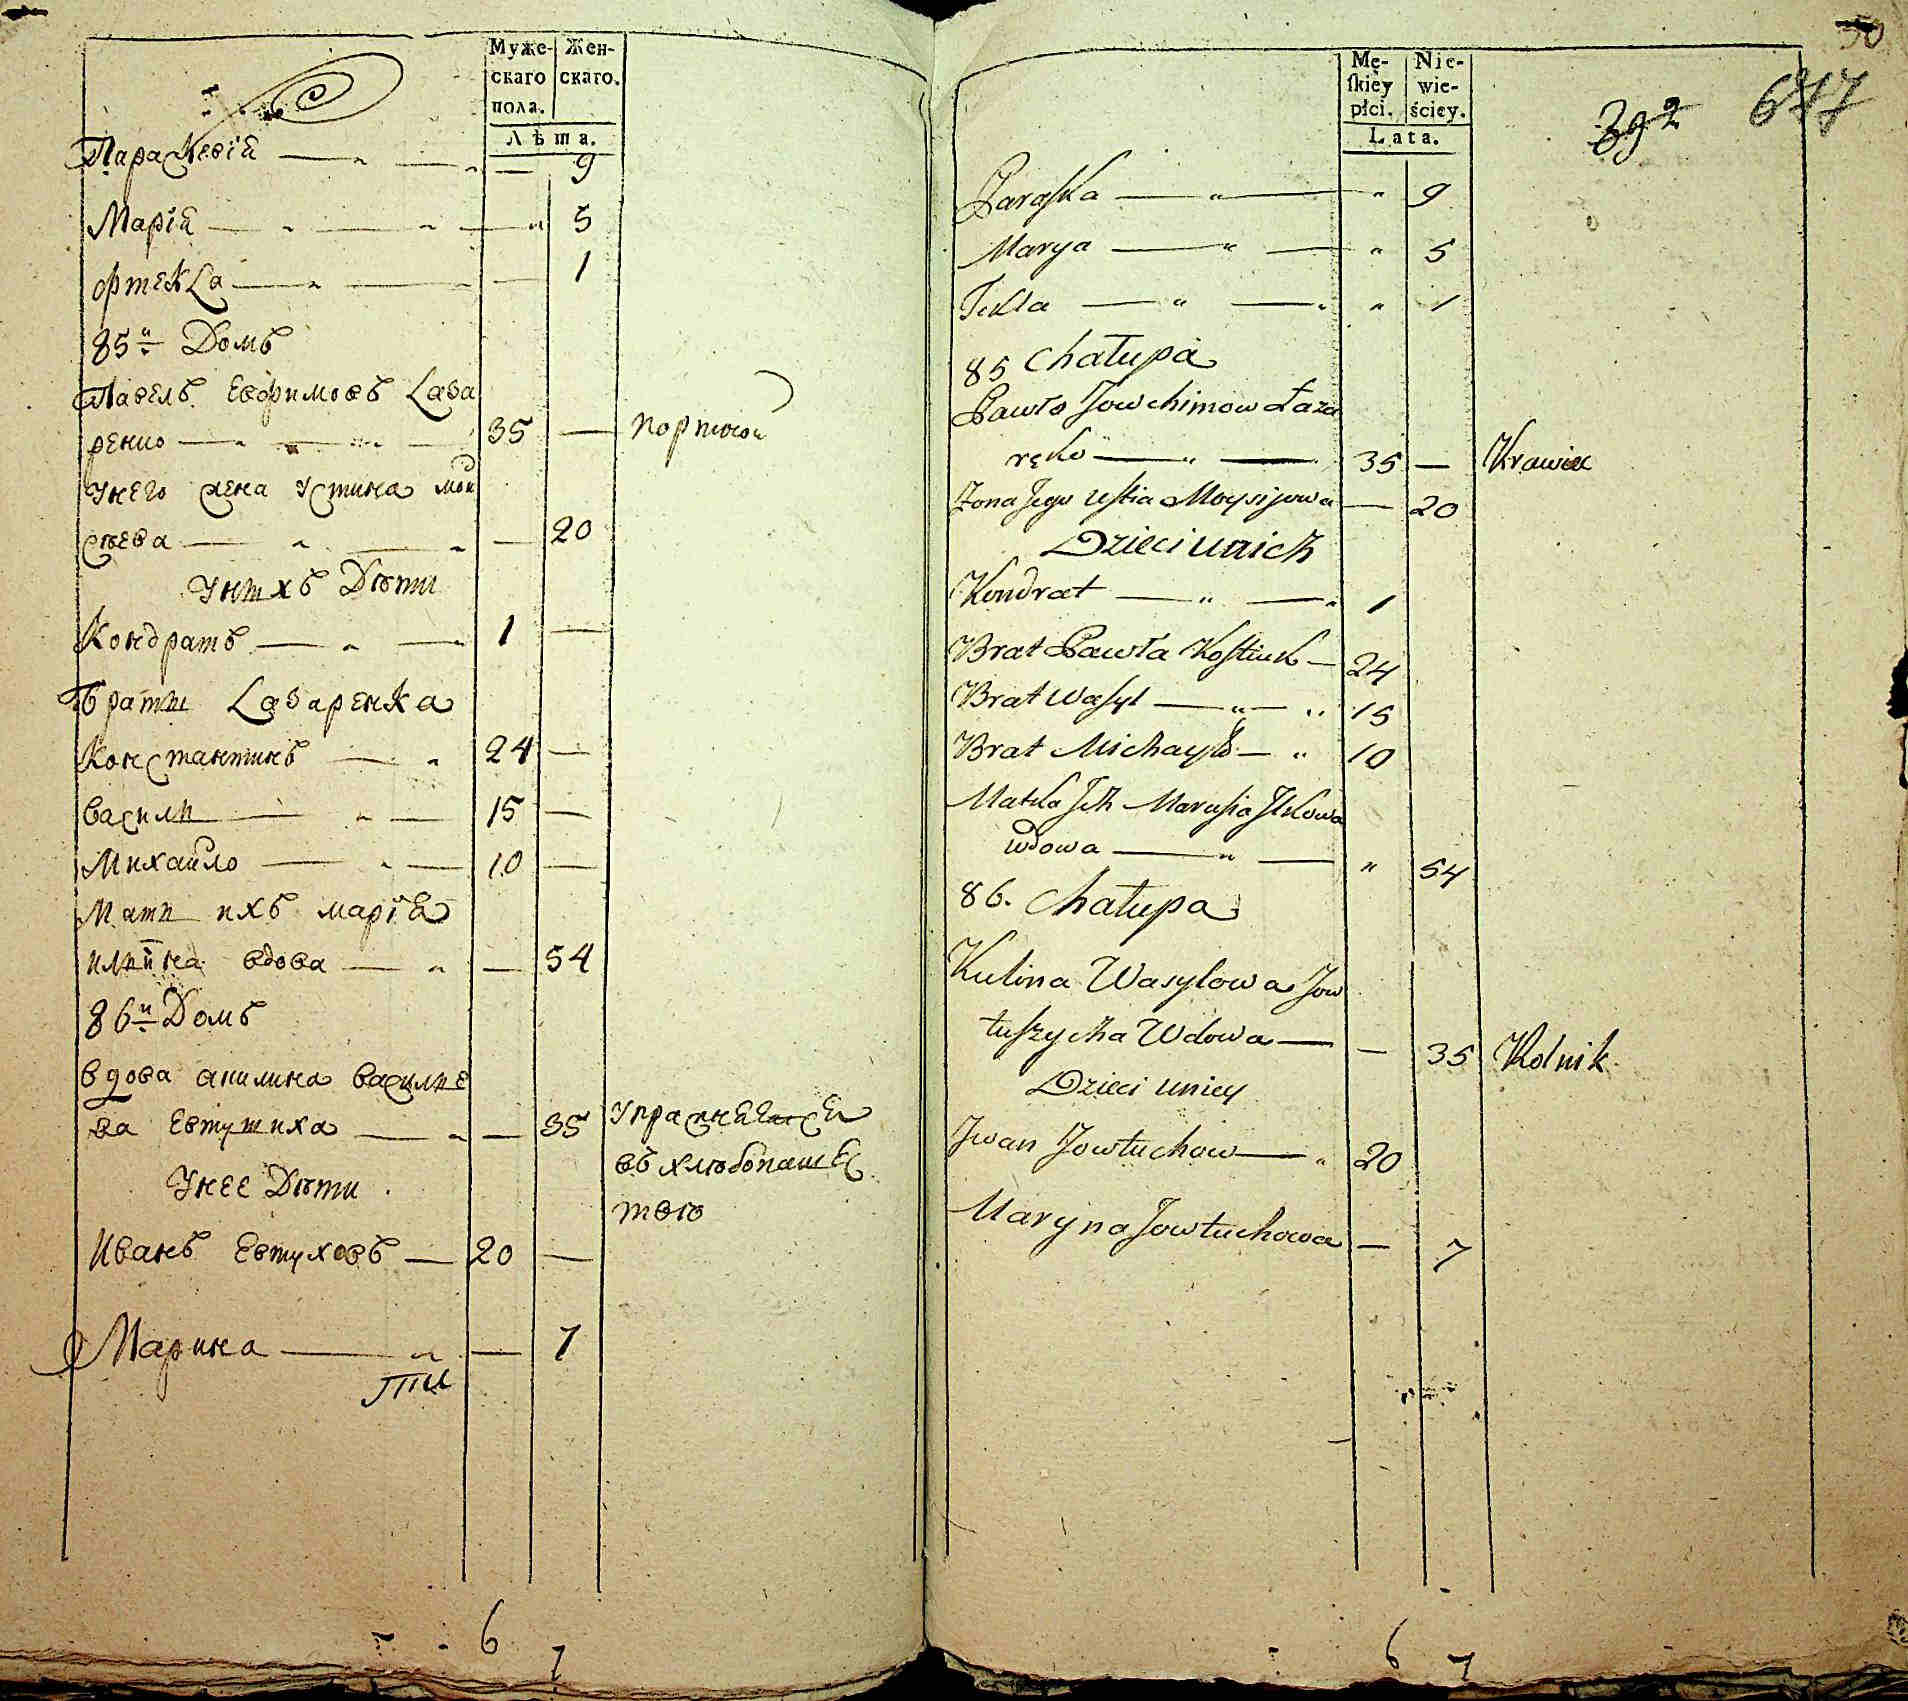 Муже-
скаго
пола.
Жен-
скаго.
Лѣта.
Параскевія — 9
Марія — 5
Фтекла — 1
85й Домъ
Павелъ Евфимовъ Лаза
ренко — 35 — портной
Унего жена Устина мои
сѣева — 20
Унихъ Дѣти
Кондратъ — 1 —
Братя Лазаренка
Константинъ — 24 —
Васили — 15 —
Михайло — 10 —
Мати ихъ марія
илиina вдова — 54
86й Домъ
вдова акилина василие
ва Евтушиха — 35 Упражняется
въ хлѣбопашес
твѣ
Унее Дѣти
Иванъ Евтуховъ — 20 —
Марина — 7
6 7
50
677
392
Mę-
skiey
płci.
Nie-
wie-
ściey.
Lata.
Paraska — " — " 9
Marya — " — " 5
Tekla — " — " 1
85 Chałupa
Pawło Jowchimow Łaza
ręko — " — 35 — Krawiec
Zona Jego Ustia Moysijowa — 20
Dzieci unich
Kondrat — " — 1
Brat Pawła Kostiuk — 24
Brat Wasyl — " — 15
Brat Michayło — " 10
Matka Jch Marusia Jlkowa
wdowa — " — " 54
86. Chałupa
Kulina Wasylowa Jow
tuszycha Wdowa — — 35 Rolnik
Dzieci uniey
Jwan Jowtuchow — " 20
Maryna Jowtuchowa — 7
6 7